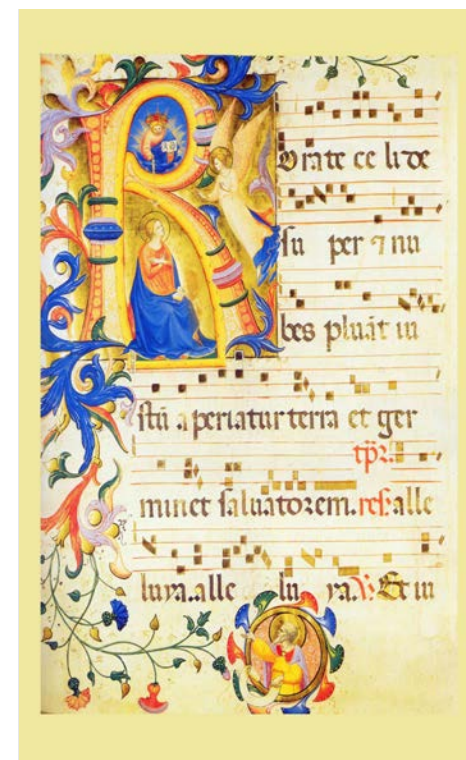 R orate celi de
su per ⁊ nu
bes pluāt iu
stū aperiatur terra et ger
tp̄r.
minet saluatorem. res: alle
luya. alle lu ya. ℣. Et iu